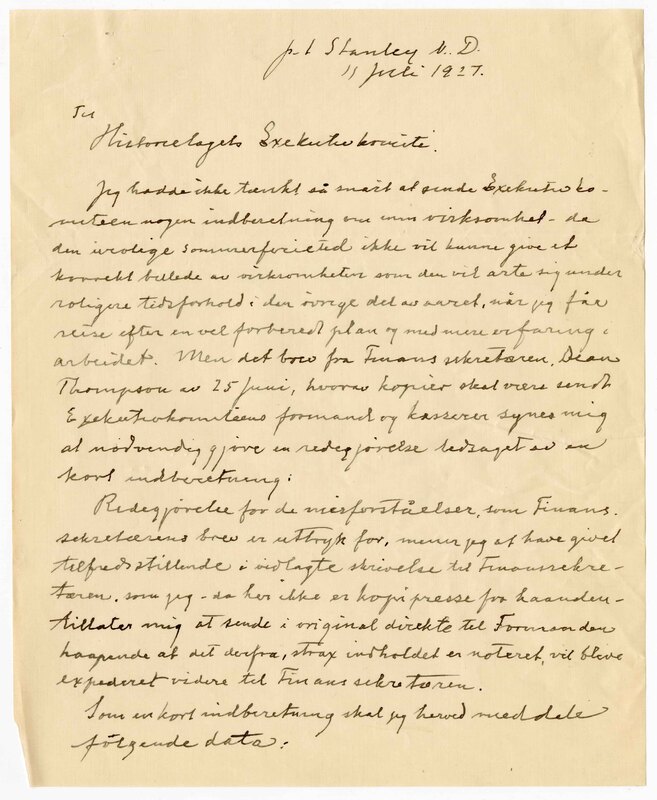 p. t Stanley N. D.
11 Juli 1927.
Til
Historielagets Exekutivkomite.
Jeg hadde ikke tænkt så snart at sende Exekutivko-
miteen nogen indberetning om min virksomhet - da
den urolige sommerferietid ikke vil kunne give et
korrekt billede av virksomheten som den vil arte sig under
roligere tidsforhold i den øvrige del av aaret, når jeg får
reise efter en vel forberedt plan og med mere erfaring i
arbeidet. Men det brev fra Finanssekretæren, Dean
Thompson av 25 Juni, hvorav kopier skal være sendt
Exekutivkomiteens formand og kasserer synes mig
at nødvendiggjøre en redegjørelse ledsaget av en
kort indberetning:
Redegjørelse for de misforståelser, som Finans-
sekretærens brev er uttryk for, mener jeg at have givet
tilfredsstillende i vidlagte skrivelse til Finanssekre-
tæren, som jeg - da her ikke er kopipresse for haanden -
tillater mig at sende i original direkte til Formanden
haapende at det derfra, strax indholdet er noteret, vil blive
expederet videre til Finanssekretæren.
Som en kort indberetning skal jeg herved meddele
følgende data: